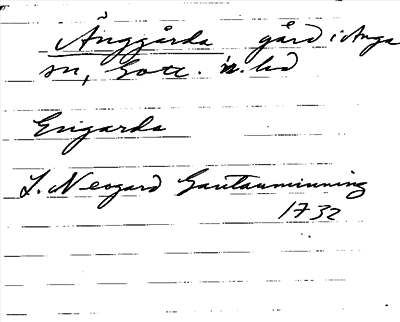 Änggårda gård i Anga
sn, Gotl. n. hd
Engarda
L. Neogard Gautauminning
1732